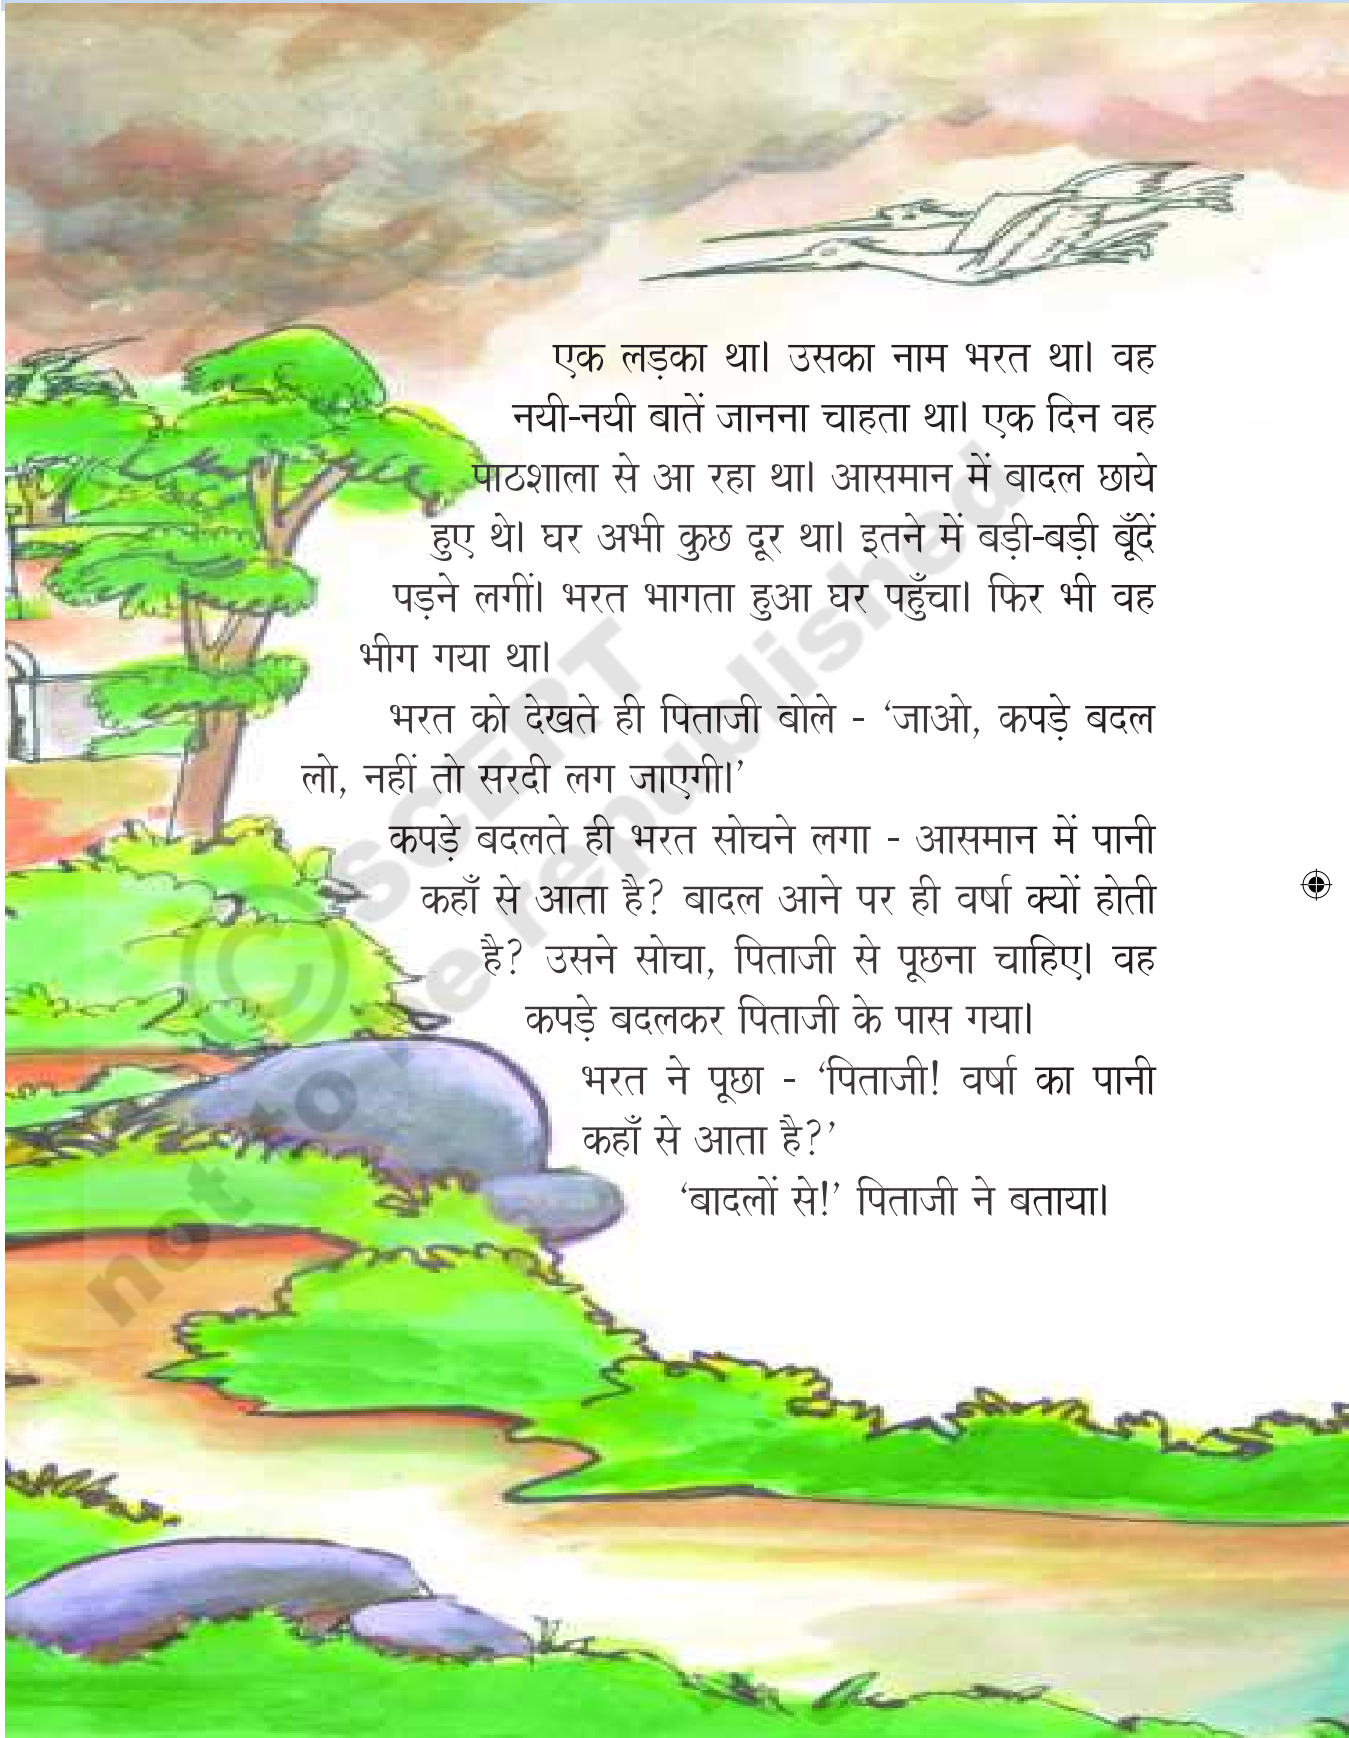 एक लड़का था। उसका नाम भरत था। वह
नयी-नयी बातें जानना चाहता था। एक दिन वह
पाठशाला से आ रहा था। आसमान में बादल छाये
हुए थे। घर अभी कुछ दूर था। इतने में बड़ी-बड़ी बूँदें
पड़ने लगीं। भरत भागता हुआ घर पहुँचा। फिर भी वह
भीग गया था।
भरत को देखते ही पिताजी बोले - ‘जाओ, कपड़े बदल
लो, नहीं तो सरदी लग जाएगी।’
कपड़े बदलते ही भरत सोचने लगा - आसमान में पानी
कहाँ से आता है? बादल आने पर ही वर्षा क्यों होती
है? उसने सोचा, पिताजी से पूछना चाहिए। वह
कपड़े बदलकर पिताजी के पास गया।
भरत ने पूछा - ‘पिताजी! वर्षा का पानी
कहाँ से आता है?’
‘बादलों से!’ पिताजी ने बताया।
© SCERT
not to be republished